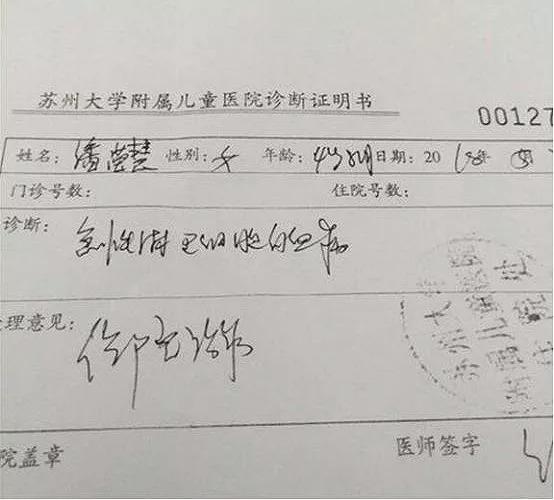 苏州大学附属儿童医院诊断证明书
00127
姓名: 潘莹慧 性别: 女 年龄: 4岁 日期: 2018年
门诊号数: 住院号数:
诊断: 急性淋巴细胞白血病
理意见:
院盖章 医师签字